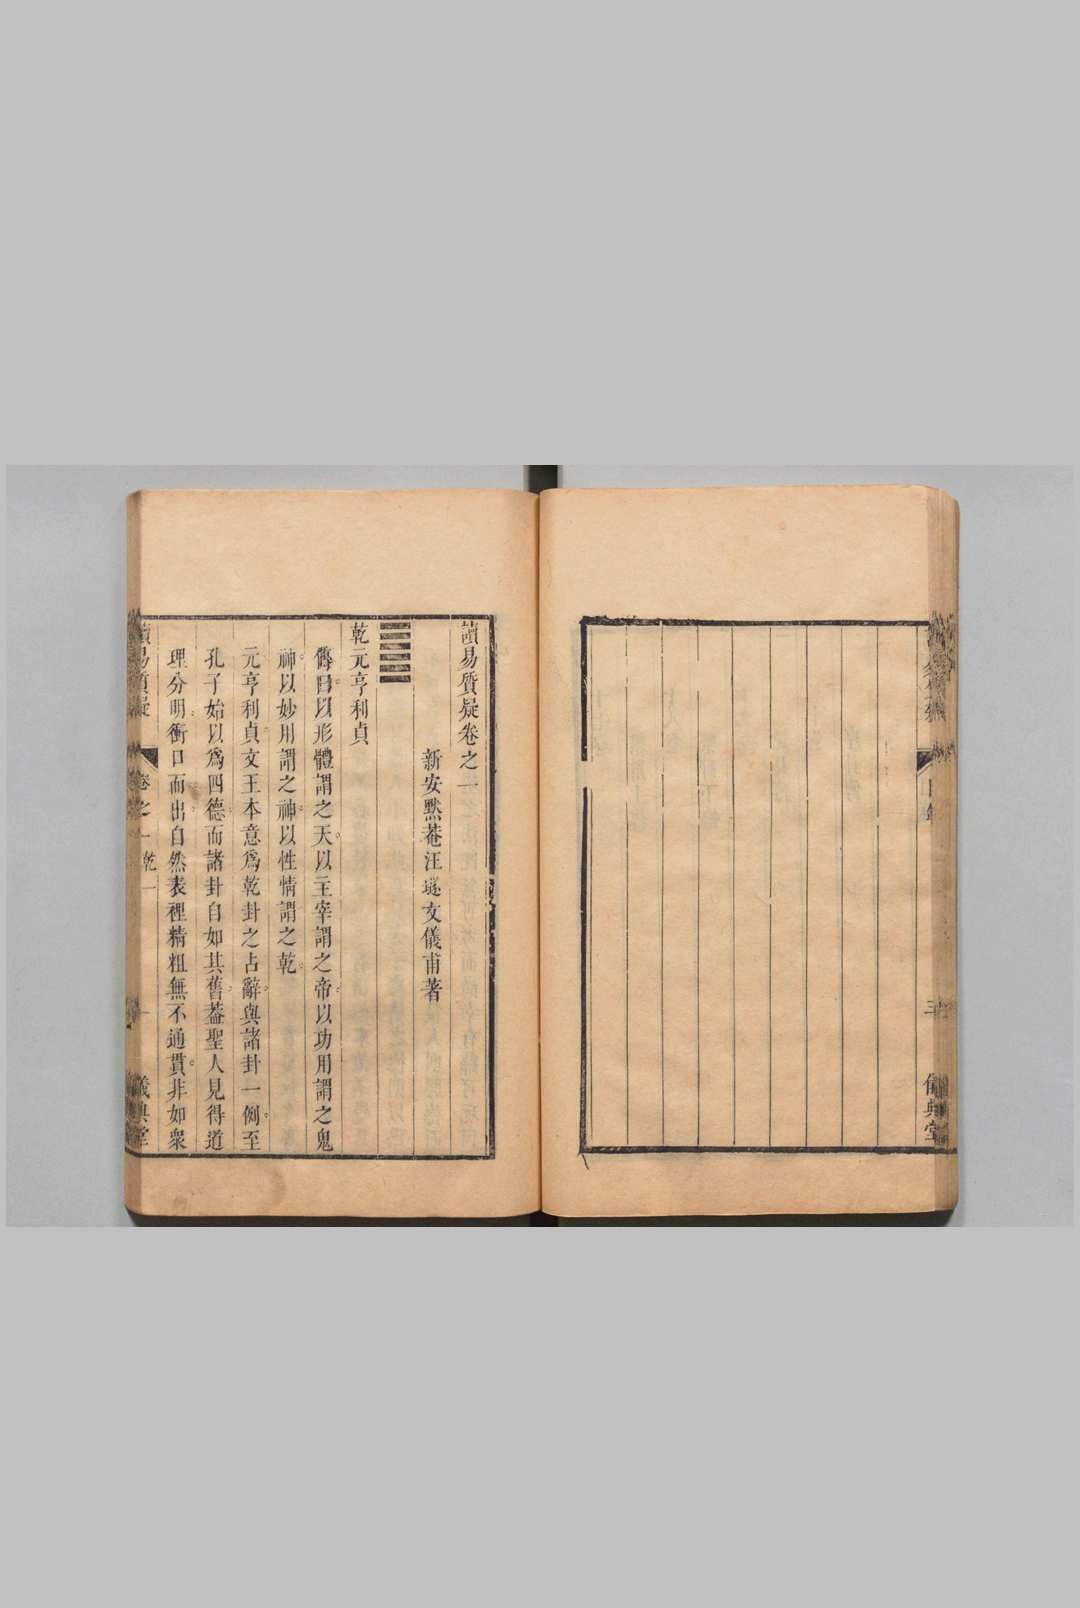 儀典堂
讀易質疑卷之一
新安默菴汪璲文儀甫著
乾元亨利貞
傳曰以形體謂之天以主宰謂之帝以功用謂之鬼
神以妙用謂之神以性情謂之乾
元亨利貞文王本意爲乾卦之占辭與諸卦一例至
孔子始以爲四德而諸卦自如其舊葢聖人見得道
理分明衝口而出自然表裡精粗無不通貫非如衆
讀易質疑 卷之一 乾 一 儀典堂